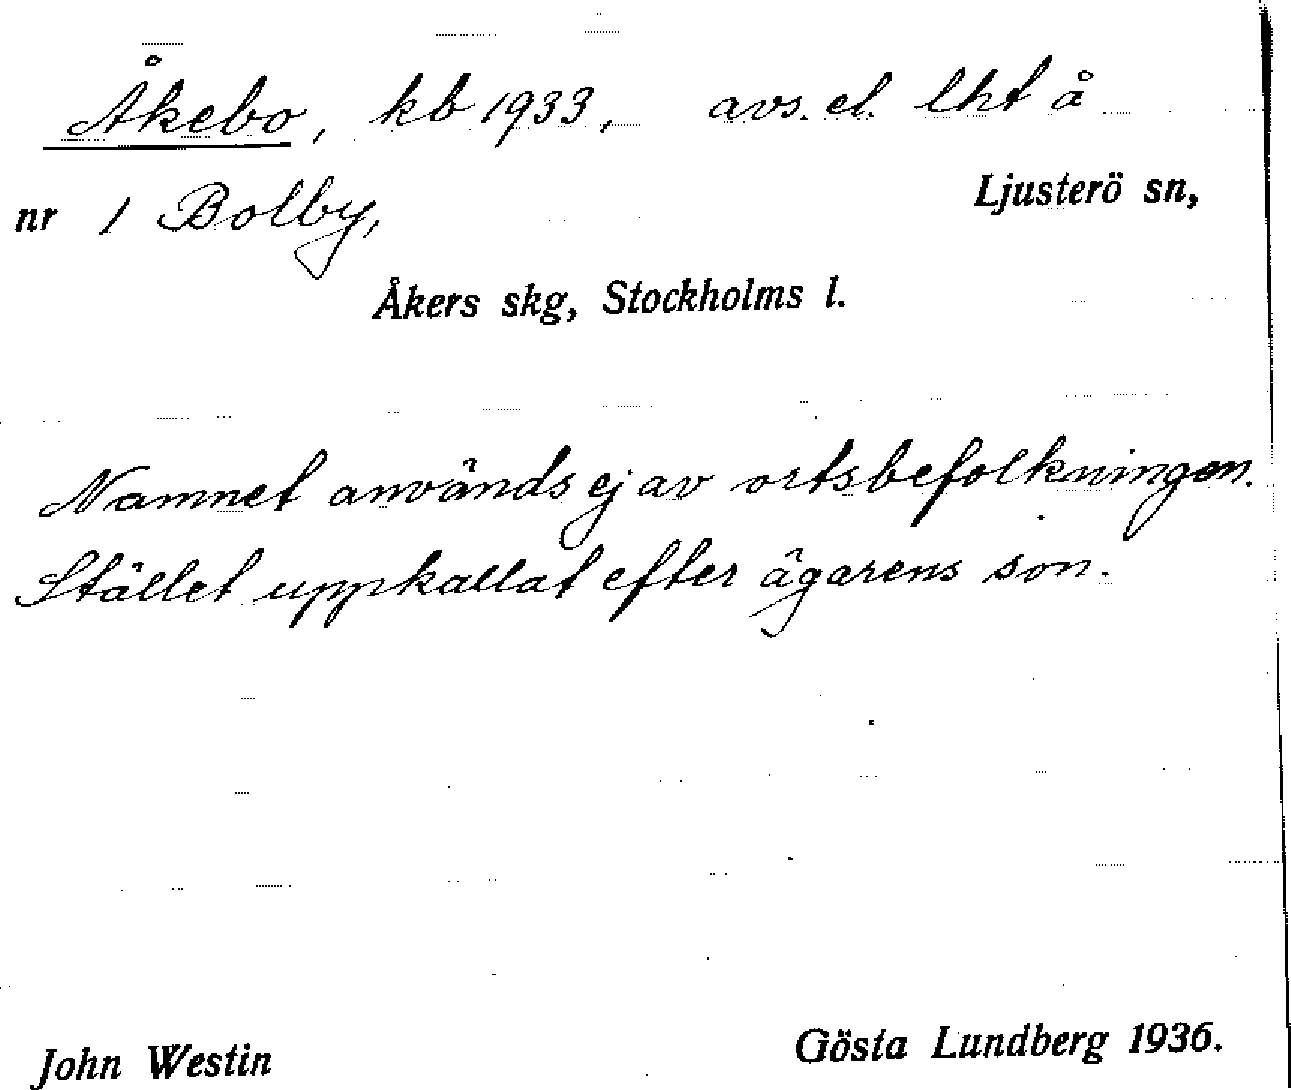 Åkebo, kb 1933, avs. el. lht å
nr 1 Bolby, Ljusterö sn,
Åkers skg, Stockholms l.
Namnet används ej av ortsbefolkningen.
Stället uppkallat efter ägarens son.
John Westin Gösta Lundberg 1936.